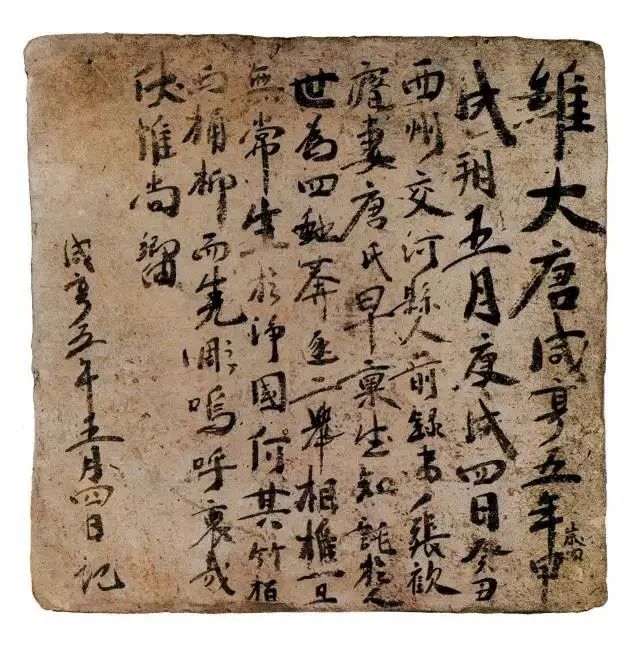 維大唐咸亨五年歲次甲
戌朔五月庚戌四日癸丑
西州交河縣人前錄事張歡
妻唐氏早稟生知託於人
世為四莽逕二舉相摧一旦
無常生於淨國何其竹栢
而桶柳而先彫嗚呼哀哉
伏惟尚饗
咸亨五年五月四日記